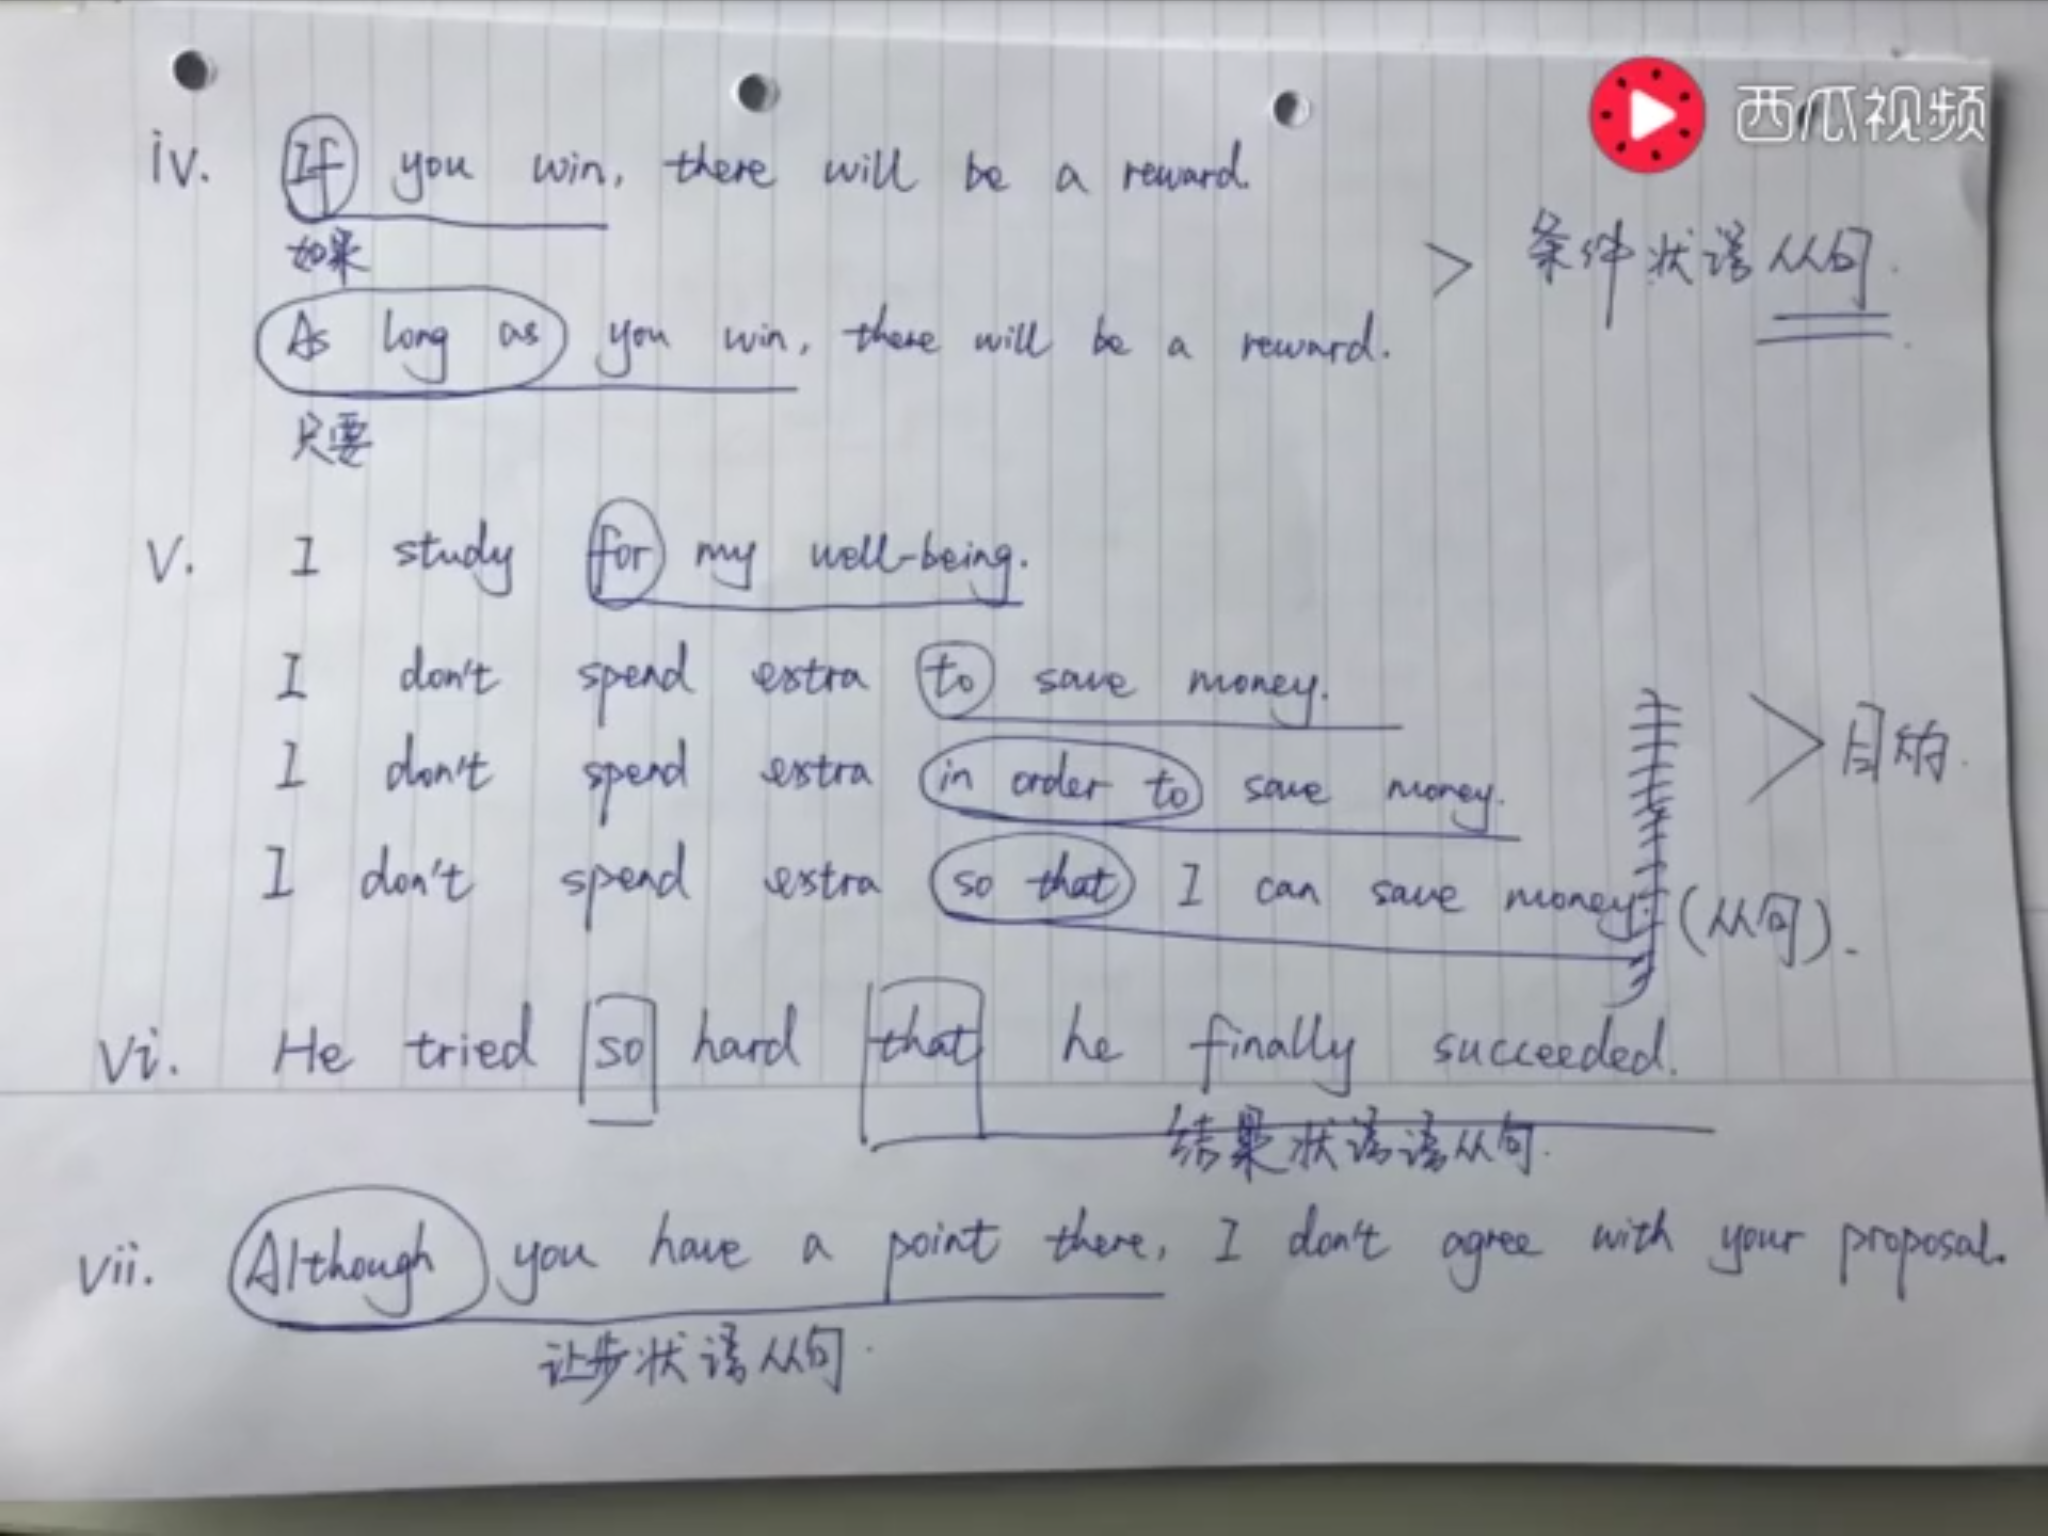 西瓜视频
iv. If you win, there will be a reward.
如果
条件状语从句.
As long as you win, there will be a reward.
只要
v. I study for my well-being.
I don't spend extra to save money.
I don't spend extra in order to save money.
目的.
I don't spend extra so that I can save money. (从句).
vi. He tried so hard that he finally succeeded.
结果状语语从句.
vii. Although you have a point there, I don't agree with your proposal.
让步状语从句.